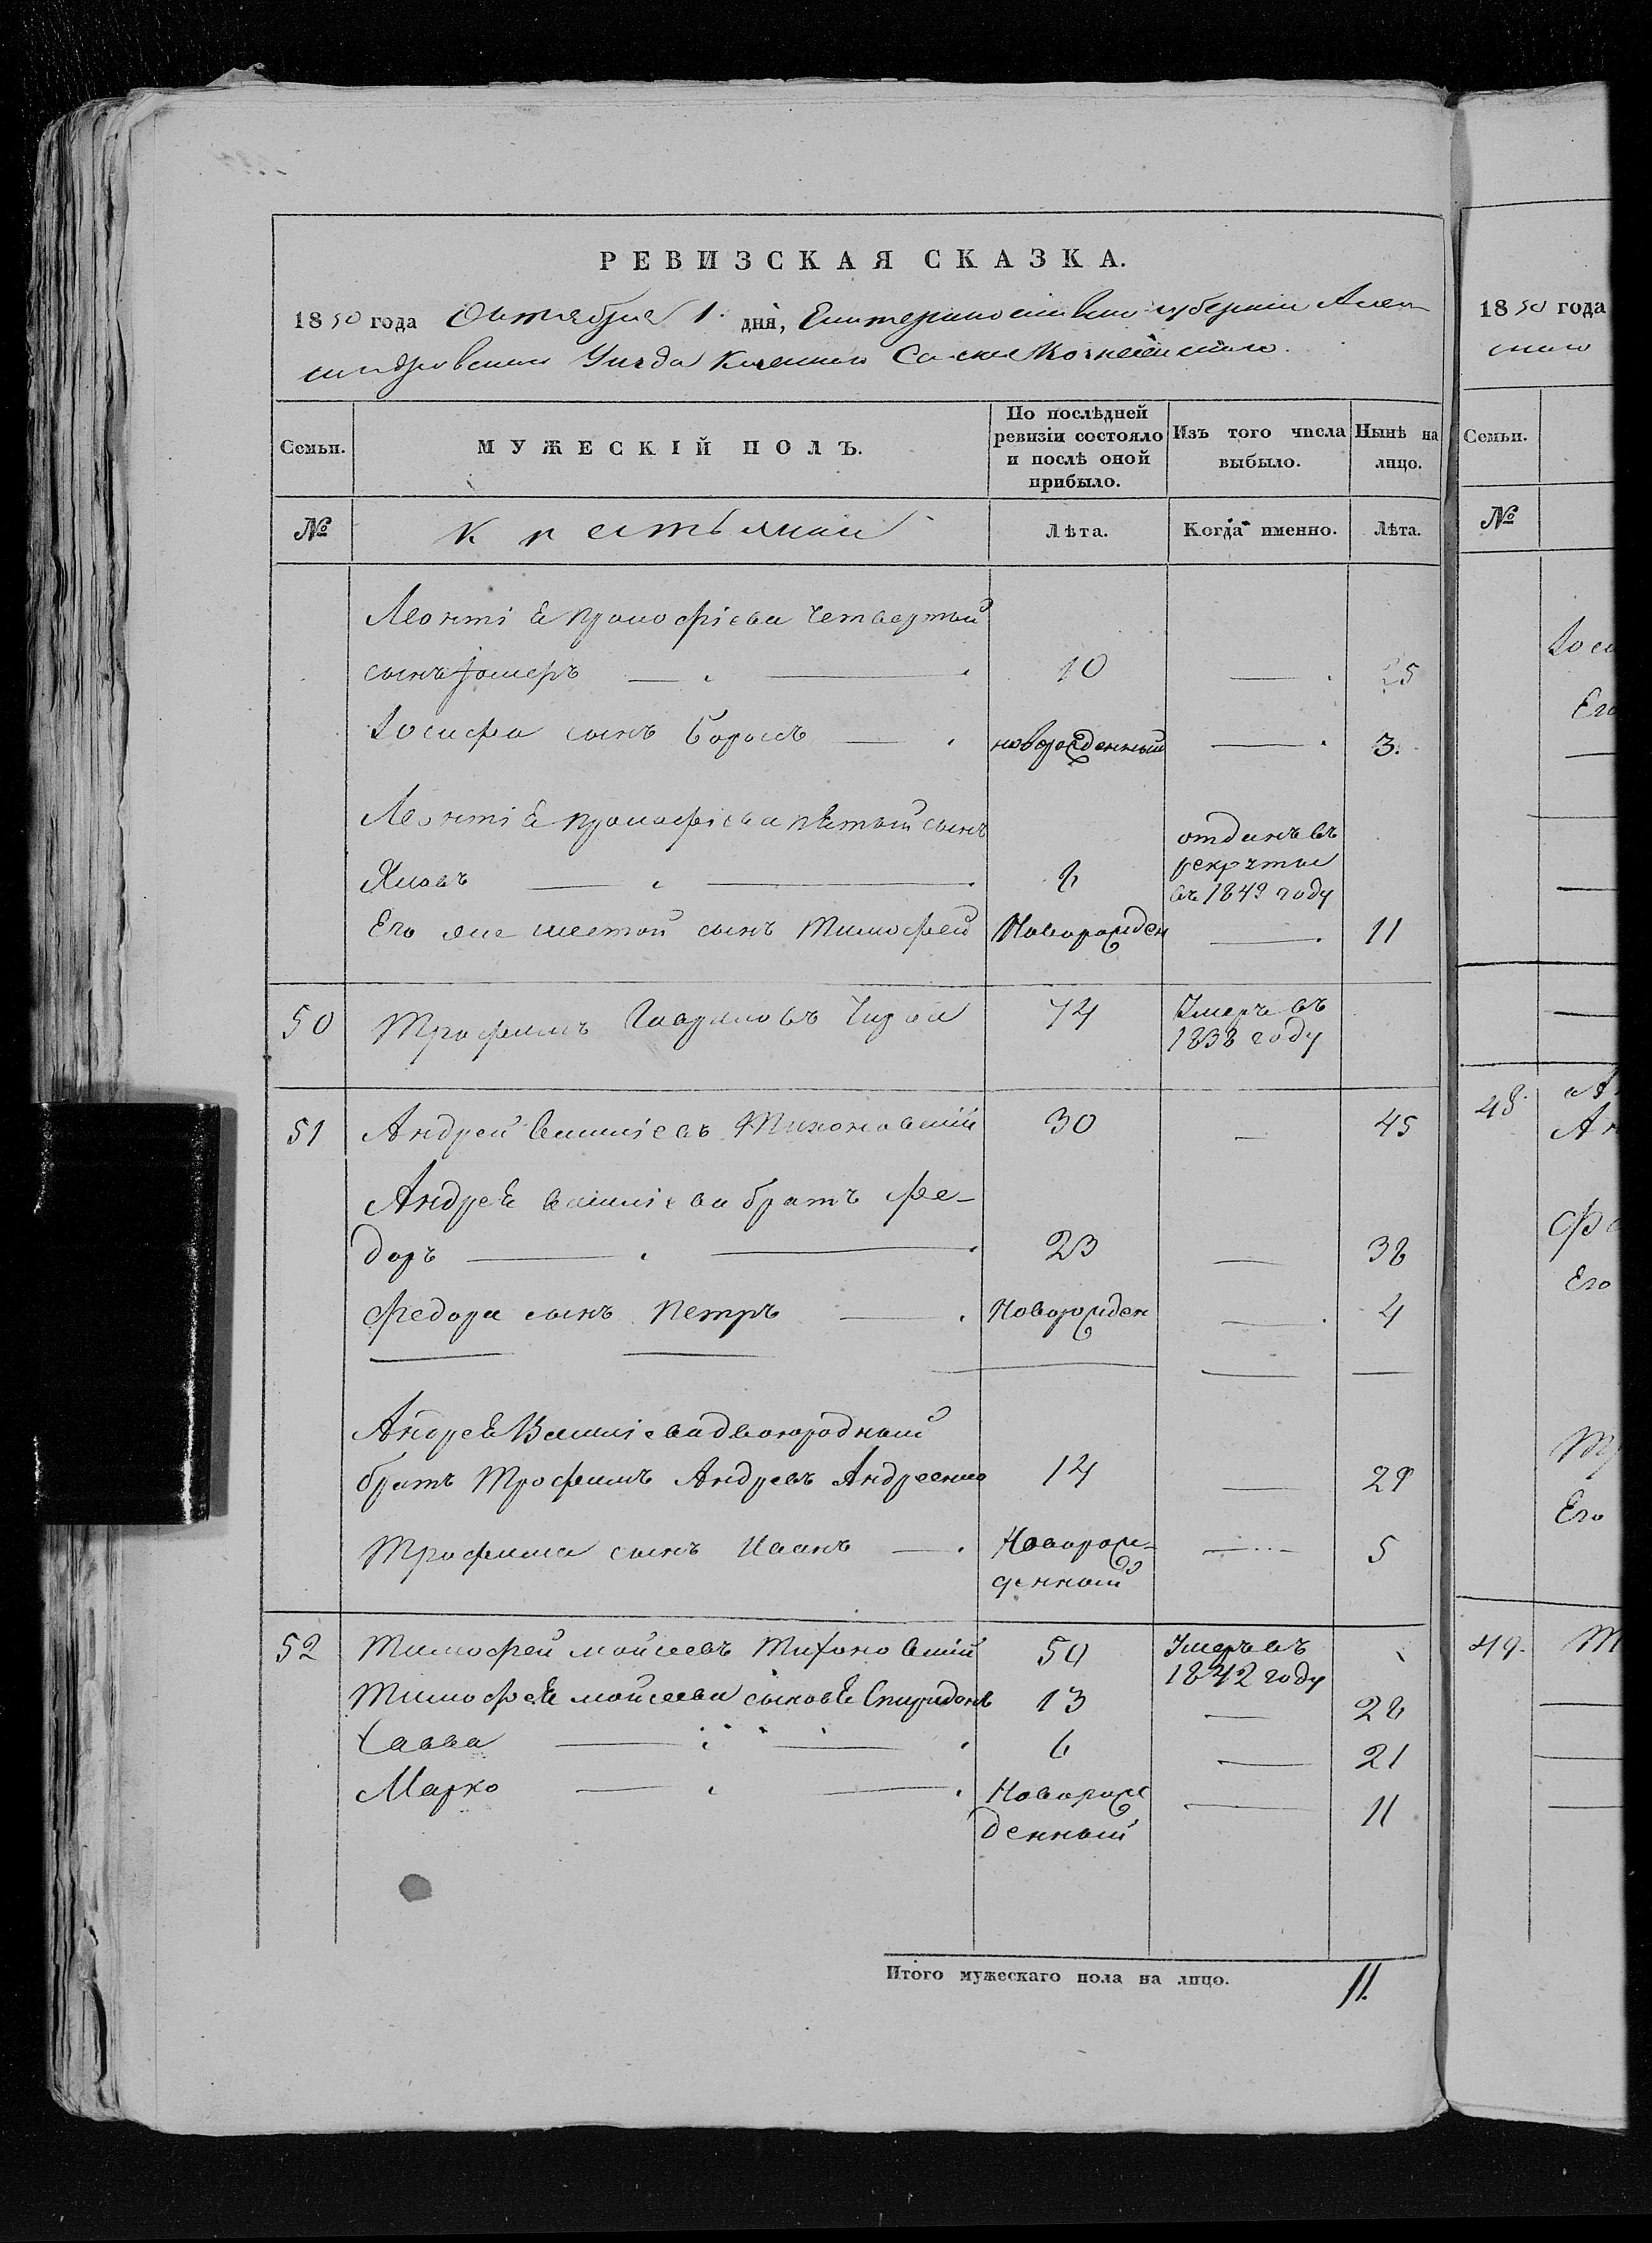 РЕВИЗСКАЯ СКАЗКА.
1850 года Октября 1. дня, Екатеринославской губернии Алек-
сандровскаго Уезда
Семьи.
МУЖЕСКІЙ ПОЛЪ.
По послѣдней ревизіи состояло и послѣ оной прибыло.
Изъ того числа выбыло.
Нынѣ на лицо.
№ Крестьяне Лѣта. Когда именно. Лѣта.
Леонтіѣ четвертый
сынъ 10 — 25
Іосифа сынъ Борисъ — новорожденный — 3.
Леонтіѣ пѣтый сынъ
Яковъ — отданъ въ рекруты въ 1849 году
Его же шестой сынъ Тимофей Новорожден — 11
50 Трофимъ Гавриловъ 74 Умеръ въ 1838 году
51 Андрей Василіевъ Тихоновскій 30 — 45
Андреѣ Василіева братъ Фе-
доръ — 23 — 38
Федора сынъ Петръ — Новорожден — 4
Андреѣ Василіева двоюродный
братъ Трофимъ Андреевъ 14 — 29
Трофима сынъ Иванъ — Новорож-
денный — 5
52 Тимофей Мойсеевъ Тихоновскій 50 Умеръ въ 1842 году
Тимофеѣ Мойсеева сыновѣ Спиридонъ 13 — 28
Савва — 6 — 21
Марко — Новорож
денный — 11
Итого мужескаго пола на лицо. 11.
1850 года
скаго
Семьи.
№
Его
48.
Его
Его
49.